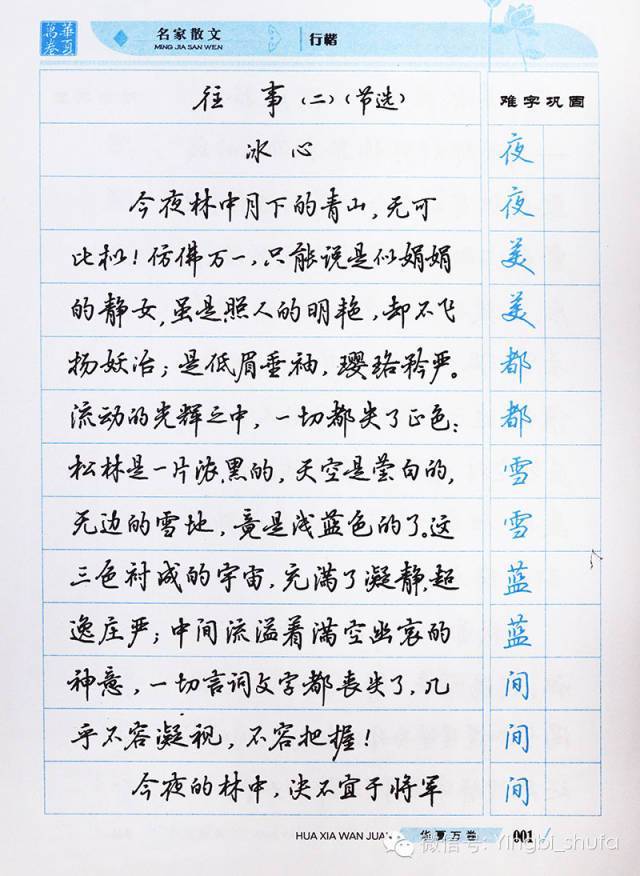 華夏
萬卷
名家散文
MING JIA SAN WEN
行楷
往事(二)(节选)
难字巩固
冰心
今夜林中月下的青山,无可
比拟!仿佛万一,只能说是似娟娟
的静女,虽是照人的明艳,却不飞
扬妖冶;是低眉垂袖,璎珞矜严。
流动的光辉之中,一切都失了正色:
松林是一片浓黑的,天空是莹白的,
无边的雪地,竟是浅蓝色的了。这
三色衬成的宇宙,充满了凝静,超
逸庄严;中间流溢着满空幽哀的
神意,一切言词文字都丧失了,几
乎不容凝视,不容把握!
今夜的林中,决不宜于将军
夜
夜
美
美
都
都
雪
雪
蓝
蓝
间
间
间
HUA XIA WAN JUAN
华夏万卷
001
微信号: Yingbi_shufa